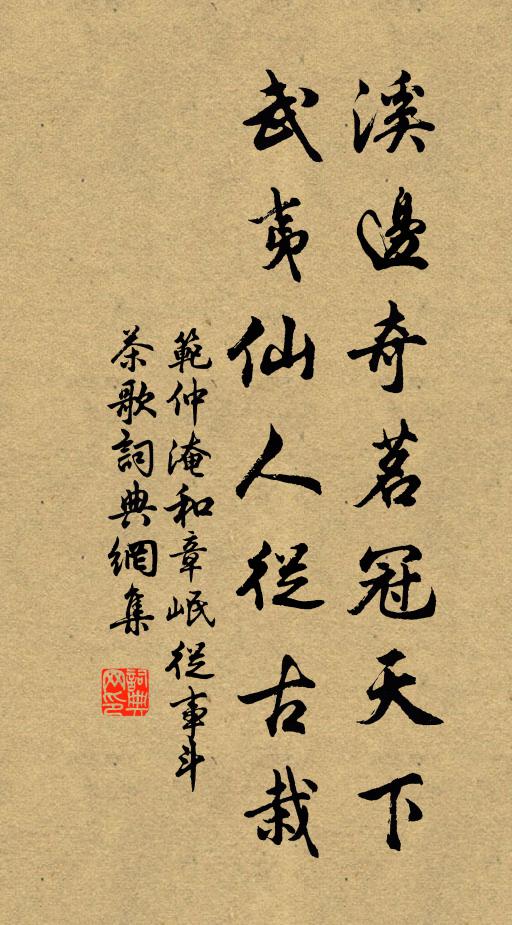 溪邊奇茗冠天下
武夷仙人從古栽
範仲淹和章岷從事斗
茶歌詞典網集
詞典网印